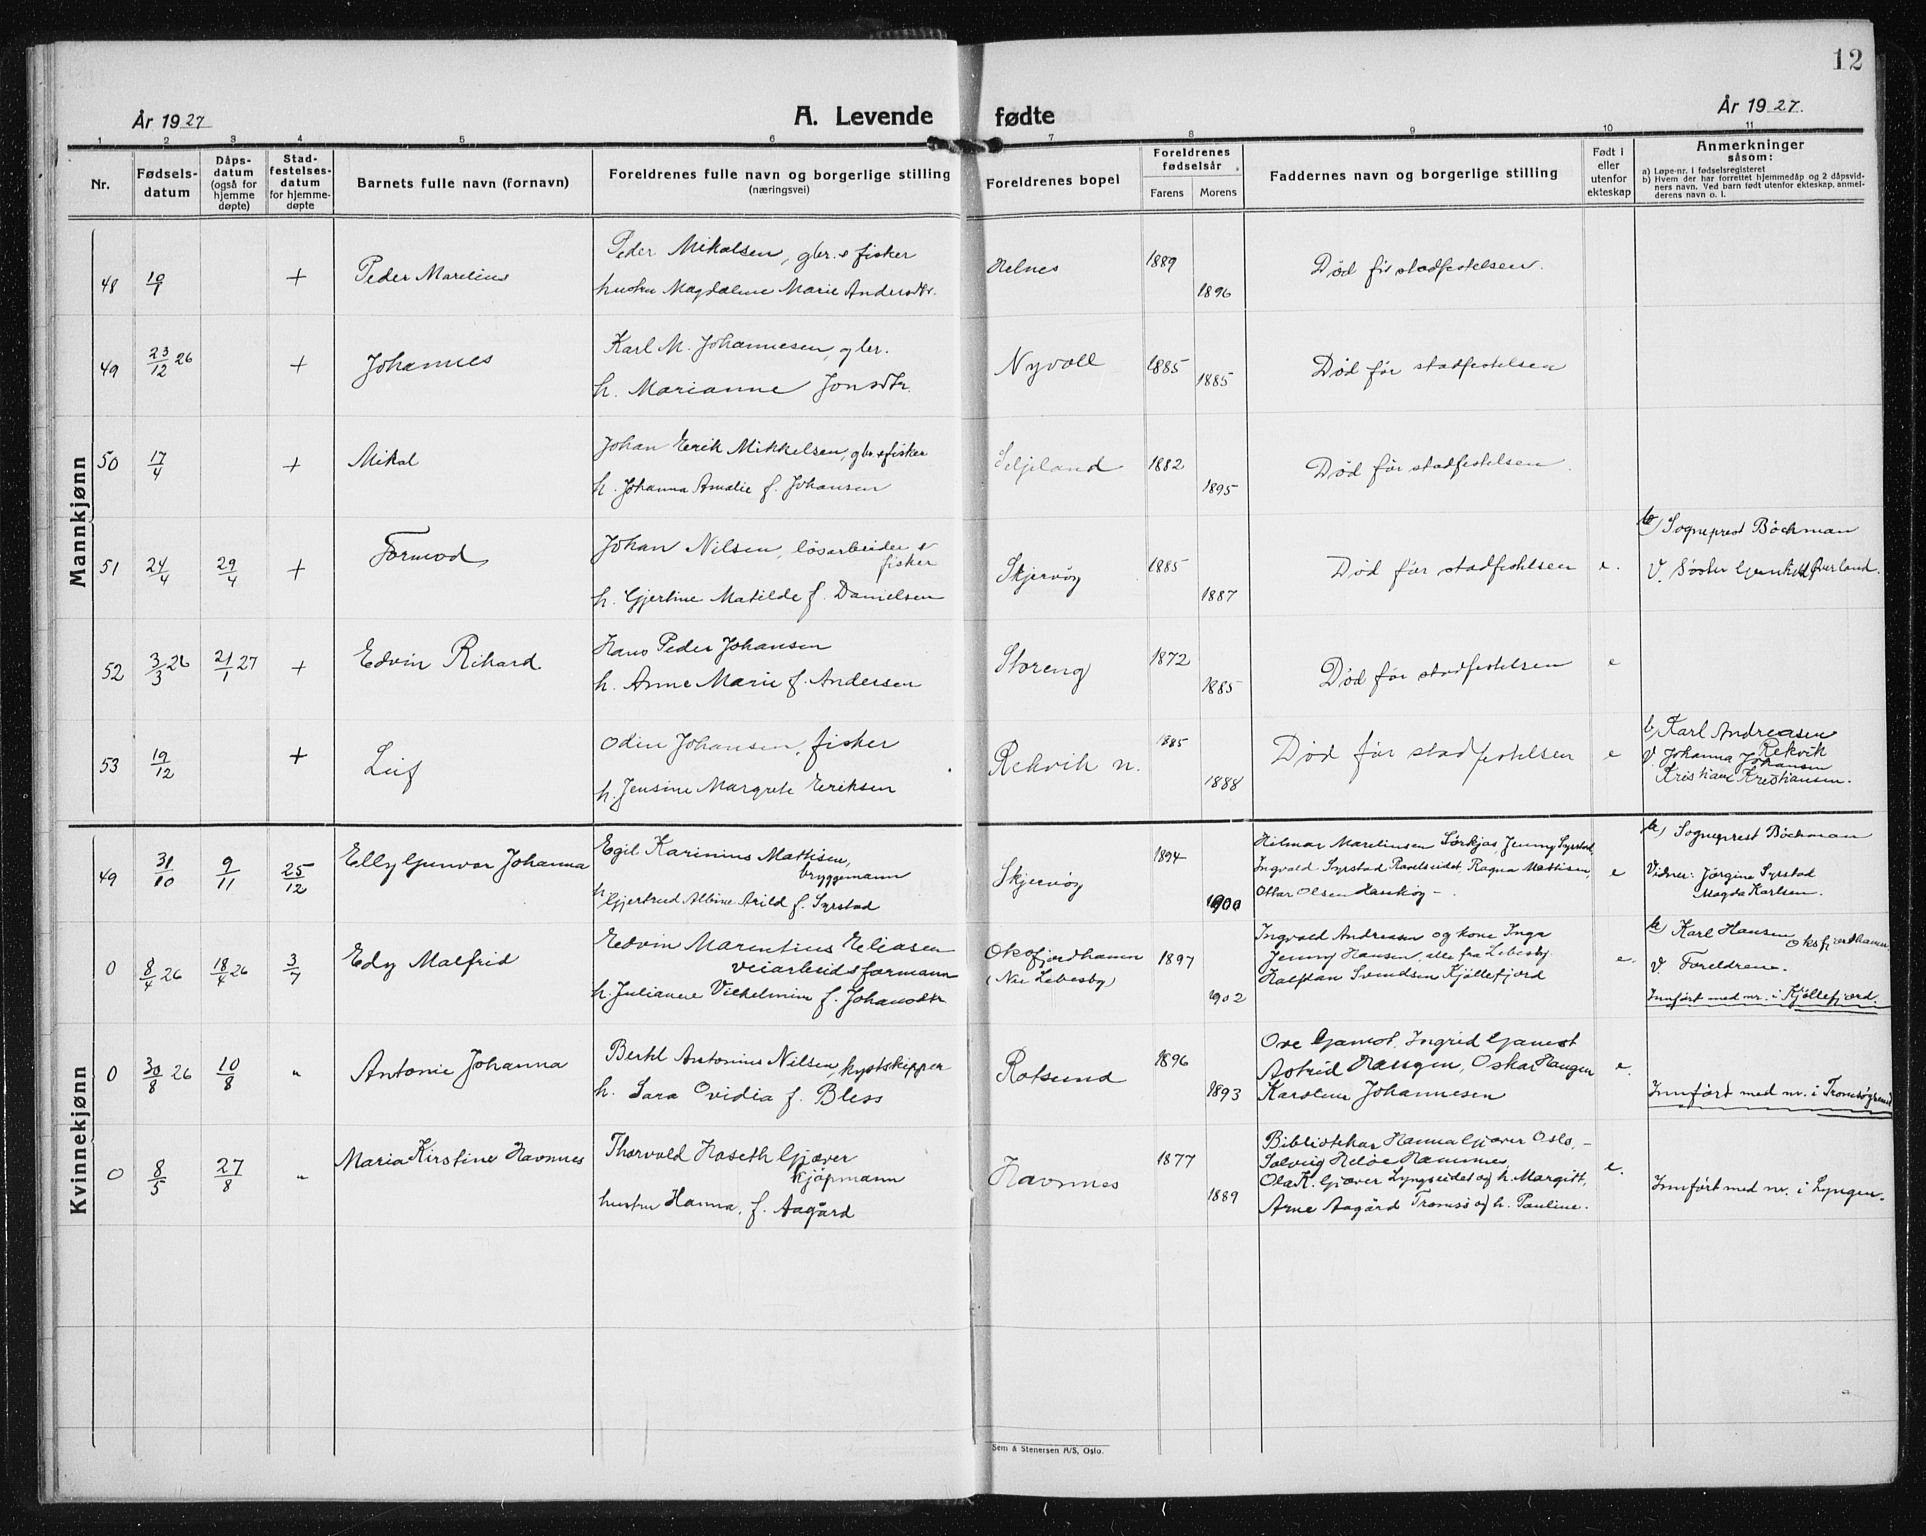 12
År 1927
A. Levende fødte
År 1927.
1 2 3 4 5 6 7 8 9 10 11
Nr.
Fødsels-
datum
Dåps-
datum
(også for
hjemme
døpte)
Stad-
festelses-
datum
for hjemme-
døpte
Barnets fulle navn (fornavn)
Foreldrenes fulle navn og borgerlige stilling
(næringsvei)
Foreldrenes bopel
Foreldrenes
fødselsår
Farens Morens
Faddernes navn og borgerlige stilling
Født i
eller
utenfor
ekteskap
Anmerkninger
såsom:
a) Løpe-nr. i fødselsregisteret
b) Hvem der har forrettet hjemmedåp og 2 dåpsvid-
ners navn. Ved barn født utenfor ekteskap, anmel-
derens navn o. l.
Mannkjønn
48 19/1 + Peder Marelius
Peder Mikalsen, gbr. & fisker
hustru Magdalene Marie Andersdtr.
Helnes 1889 1896 Død før stadfestelsen.
49 23/12 26 + Johannes
Karl M. Johannesen, gbr.
h. Marianne Jonsdtr.
Nyvoll 1885 1885 Død før stadfestelsen
50 17/4 + Mikal
Johan Erik Mikkelsen, gbr. & fisker
h. Johanna Amalie f. Johansen
Seljeland 1882 1895 Død før stadfestelsen.
51 24/4 29/4 + Tormod
Johan Nilsen, løsarbeider &
fisker
h. Gjertine Matilde f. Danielsen
Skjervøy 1885 1887 Død før stadfestelsen e.
b) Sogneprest Bøckman
V. Søster Gunhild Øverland.
52 3/3 26 21/1 27 + Edvin Rikard
Hans Peder Johansen
h. Anne Marie f. Andersen
Storeng 1872 1885 Død før stadfestelsen e
53 19/12 + Leif
Odin Johansen, fisker
h. Jensine Margrete Eriksen
Rekvik n. 1885 1888 Død før stadfestelsen e
b) Karl Andreasen
Rekvik
V. Johanna Johansen
Kristiane Kristiansen.
Kvinnekjønn
49 31/10 9/11 25/12 Elly Gunvor Johanna
Egil Karinius Mattisen,
bryggemann
h. Gjertrud Albine Arild f. Syrstad
Skjervøy 1894 1900
Hilmar Mareliussen Sørkjos, Jenny Syrstad,
Ingvald Syrstad Ravelseidet, Ragna Mattisen,
Ottar Olsen Haukøy - e
b) Sogneprest Bøckman
Vidner: Jørgine Syrstad
Magda Karlsen.
0 8/4 26 18/4 26 3/7 Edy Malfrid
Edvin Marentius Eliasen
veiarbeidsformann
h. Julianne Vilhelmine f. Johansdtr
Oksfjordhamn
(Nu Lebesby)
1897 1902
Ingvald Andreasen og kone Inga
Jenny Hansen, alle fra Lebesby.
Halfdan Svendsen Kjøllefjord e.
b) Karl Hansen
Oksfjordhamn
V. Foreldrene.
Innført med nr. i Kjøllefjord.
0 30/8 26 10/8 " Antonie Johanna
Bertil Antonius Nilsen, kystskipper
h. Sara Ovidia f. Bless
Rotsund 1896 1893
Ove Gamst, Ingrid Gamst
Astrid Haugen, Oskar Haugen
Karoline Johannesen e.
Innført med nr. i Tromsøysund
0 8/5 27/8 " Maria Kirstine Havnnes
Thorvald Haseth Gjæver
kjøpmann
hustru Hanna, f. Aagård
Havnnes 1877 1889
Bibliotekar Hanna Gjæver Oslo, -
Solveig Heløe Havnnes,
Ola K. Gjæver Lyngseidet og h. Margitt,
Arne Aagård Tromsø og h. Pauline. e.
Innført med nr. i Lyngen.
Sem & Stenersen A/S, Oslo.